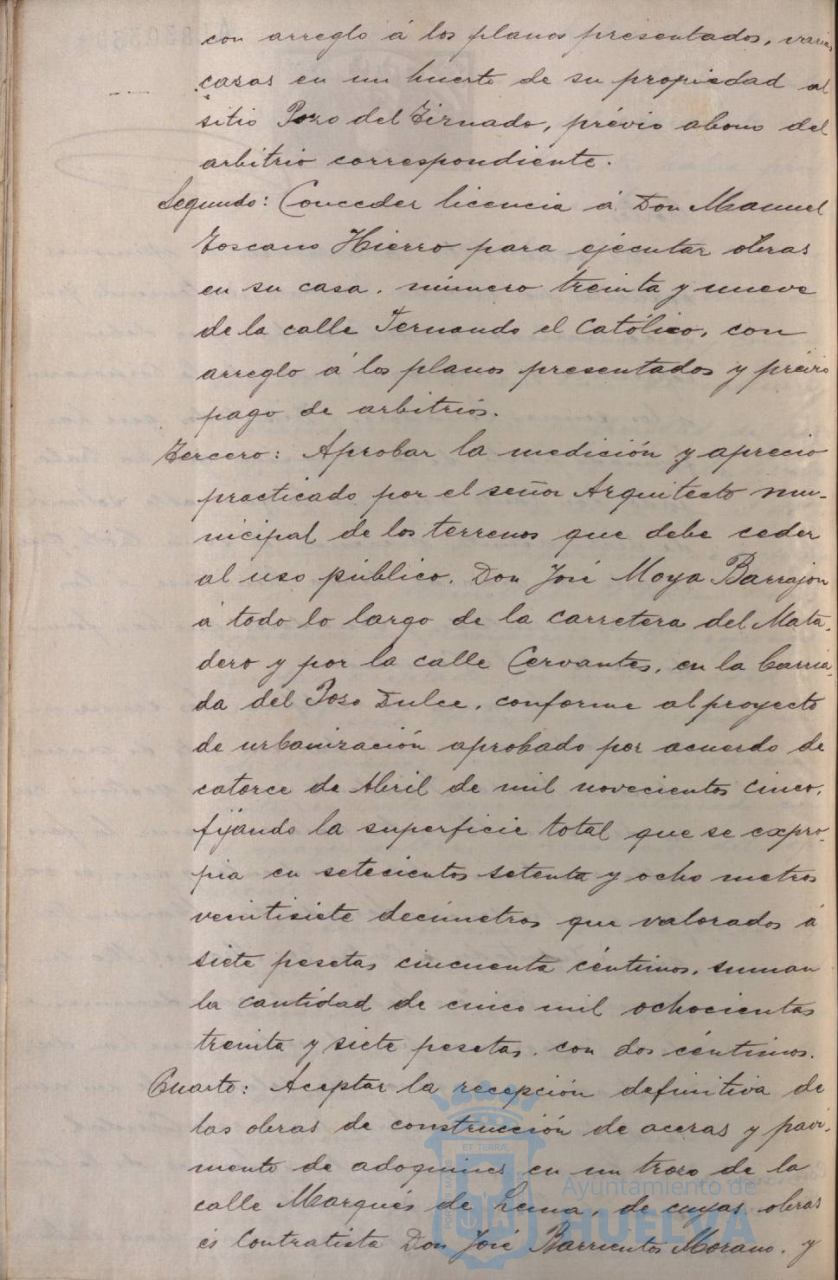 con arreglo á los planos presentados, varias
casas en un huerto de su propiedad al
sitio Pozo del Tirnado, prévio abono del
arbitrio correspondiente.
Segundo: Conceder licencia á Don Manuel
Toscano Hierro para ejecutar obras
en su casa, número treinta y nueve
de la calle Fernando el Católico, con
arreglo á los planos presentados y prévio
pago de arbitrios.
Tercero: Aprobar la medición y aprecio
practicado por el señor Arquitecto mu-
nicipal de los terrenos que debe ceder
al uso público, Don José Moya Barrajon
á todo lo largo de la carretera del Mata-
dero y por la calle Cervantes, en la barria-
da del Poso Dulce, conforme al proyecto
de urbanización aprobado por acuerdo de
catorce de Abril de mil novecientos cinco,
fijando la superficie total que se expro-
pia en setecientos setenta y ocho metros
veintisiete decímetros que valorados á
siete pesetas cincuenta céntimos, suman
la cantidad de cinco mil ochocientas
treinta y siete pesetas, con dos céntimos.
Cuarto: Aceptar la recepción definitiva de
las obras de construcción de aceras y pavi-
mento de adoquines en un trozo de la
calle Marqués de Lema, de cuyas obras
es Contratista Don José Barrientos Morano, y
Ayuntamiento de
HUELVA